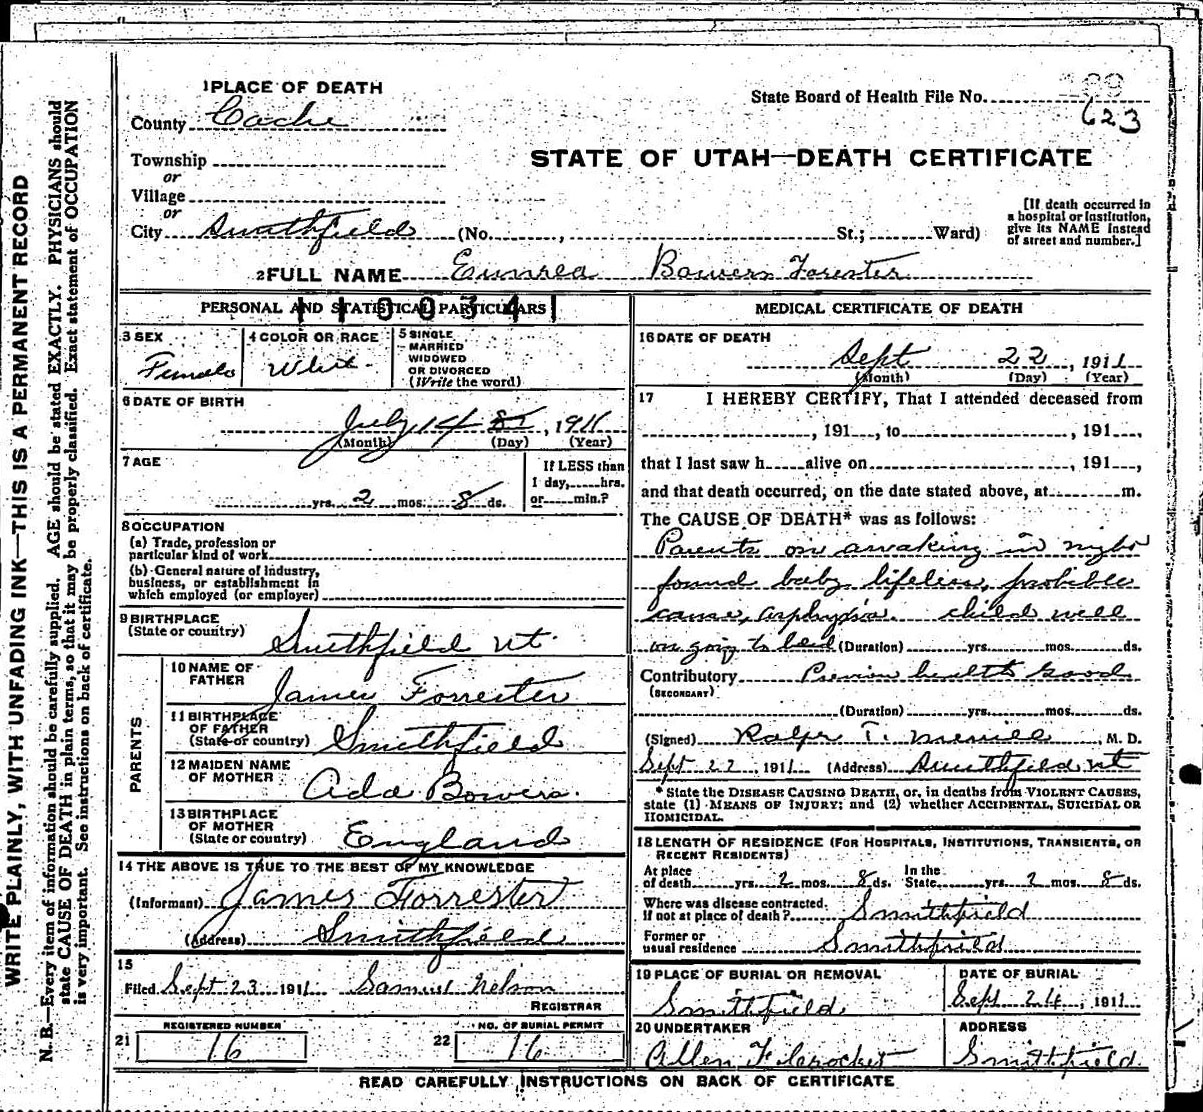 WRITE PLAINLY, WITH UNFADING INK—THIS IS A PERMANENT RECORD
N. B.—Every item of information should be carefully supplied. AGE should be stated EXACTLY. PHYSICIANS should
state CAUSE OF DEATH in plain terms, so that it may be properly classified. Exact statement of OCCUPATION
is very important. See instructions on back of certificate.
1 PLACE OF DEATH
County Cache
Township
or
Village
or
City Smithfield (No. , St.; Ward)
State Board of Health File No.
623
STATE OF UTAH—DEATH CERTIFICATE
[If death occurred in
a hospital or institution,
give its NAME instead
of street and number.]
2 FULL NAME Bowers Forester
PERSONAL AND STATISTICAL PARTICULARS
3 SEX
Female
4 COLOR OR RACE
White
5 SINGLE
MARRIED
WIDOWED
OR DIVORCED
(Write the word)
6 DATE OF BIRTH
July 14, 1911
(Month) (Day) (Year)
7 AGE
yrs. 2 mos. 8 ds.
If LESS than
1 day, hrs.
or min.?
8 OCCUPATION
(a) Trade, profession or
particular kind of work
(b) General nature of industry,
business, or establishment in
which employed (or employer)
9 BIRTHPLACE
(State or country) Smithfield Ut.
PARENTS
10 NAME OF
FATHER James Forrester
11 BIRTHPLACE
OF FATHER
(State or country) Smithfield
12 MAIDEN NAME
OF MOTHER Ada Bowers.
13 BIRTHPLACE
OF MOTHER
(State or country) England
14 THE ABOVE IS TRUE TO THE BEST OF MY KNOWLEDGE
(Informant) James Forrester
(Address) Smithfield
15
Filed Sept 23 1911 Samuel Nelson
REGISTRAR
REGISTERED NUMBER
21 16
NO. OF BURIAL PERMIT
22 16
MEDICAL CERTIFICATE OF DEATH
16 DATE OF DEATH
Sept 22, 1911
(Month) (Day) (Year)
17 I HEREBY CERTIFY, That I attended deceased from
, 191 , to , 191 ,
that I last saw h alive on , 191 ,
and that death occurred, on the date stated above, at m.
The CAUSE OF DEATH* was as follows:
Parents on awaking in night
found baby lifeless, probable
cause, asphyxia. child well
on going to bed (Duration) yrs. mos. ds.
Contributory Previous health good
(SECONDARY)
(Duration) yrs. mos. ds.
(Signed) Ralph T. Merrill, M. D.
Sept 22, 1911 (Address) Smithfield Ut
* State the DISEASE CAUSING DEATH, or, in deaths from VIOLENT CAUSES,
state (1) MEANS OF INJURY; and (2) whether ACCIDENTAL, SUICIDAL OR
HOMICIDAL.
18 LENGTH OF RESIDENCE (FOR HOSPITALS, INSTITUTIONS, TRANSIENTS, OR
RECENT RESIDENTS)
At place
of death yrs. 2 mos. 8 ds. In the
State yrs. 2 mos. 8 ds.
Where was disease contracted.
if not at place of death? Smithfield
Former or
usual residence Smithfield
19 PLACE OF BURIAL OR REMOVAL
Smithfield
DATE OF BURIAL
Sept 24, 1911
20 UNDERTAKER
Allen
ADDRESS
Smithfield
READ CAREFULLY INSTRUCTIONS ON BACK OF CERTIFICATE